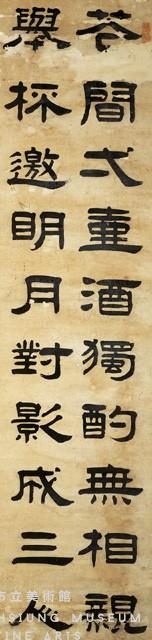 花間弌壷酒獨酌無相親
舉杯邀明月對影成三人
市立美術館
HSIUNG MUSEUM
FINE ARTS